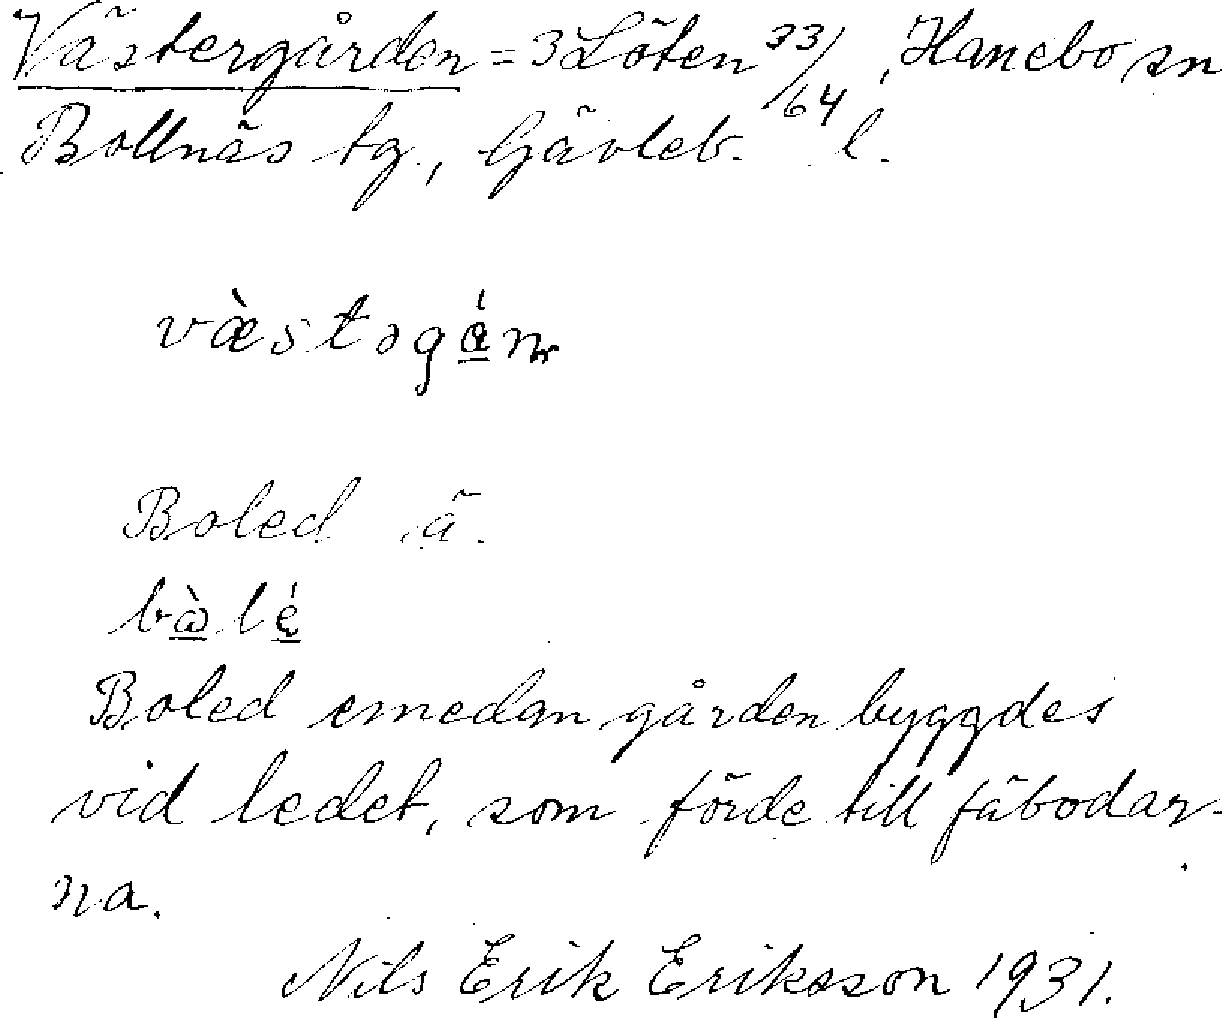 Västergården = 3 Löten 33/64, Hanebo sn
Bollnäs tg., Gävleb. l.
væ̀stəgǻ̱n
Boled ä.
bὼ̱lé̱
Boled emedan gården byggdes
vid ledet, som förde till fäbodar-
na.
Nils Erik Eriksson 1931.